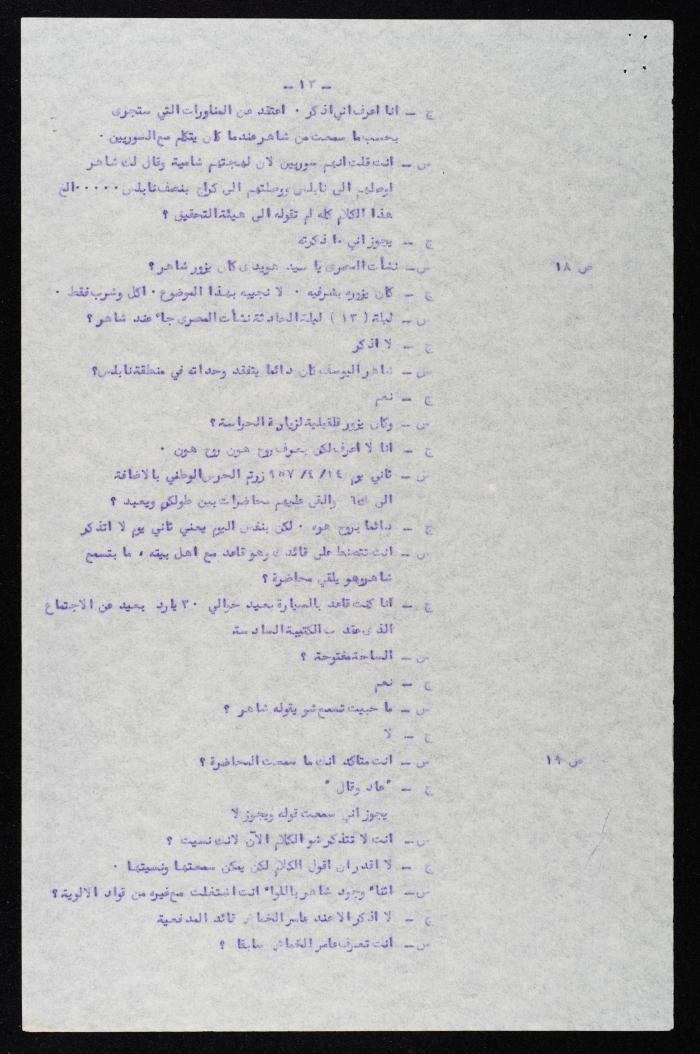 - ١٣ -
ج - انا اعرف اني اذكر ٠ اعتقد عن المناورات التي ستجرى
بحسب ما سمعت من شاهر عندما كان يتكلم مع السوريين ٠
س - انت قلت انهم سوريين لان لهجتهم شامية وقال لك شاهر
اوصلهم الى نابلس ووصلتهم الى كراج بنصف نابلس ٠٠٠٠٠ الخ
هذا الكلام كله لم تقوله الى هيئة التحقيق ؟
ج - يجوز اني ما ذكرته
ص ١٨ س - نشأت المصرى يا سيد هويدى كان يزور شاهر ؟
ج - كان يزوره بشرفيه ٠ لا نجيبه بهذا الموضوع ٠ اكل وشرب فقط ٠
س - ليلة ( ١٣ ) ليلة الحادثة نشأت المصرى جاء عند شاهر ؟
ج - لا اذكر
س - شاهر اليوسف كان دائما يتفقد وحداته في منطقة نابلس؟
ج - نعم
س - وكان يزور قلقيلية لزيارة الحراسة ؟
ج - انا لا اعرف لكن بعرف روح هون روح هون ٠
س - ثاني يوم ١٤/ ٤/ ٩٥٧ زرتم الحرس الوطني بالاضافة
الى ك٦ والقى عليهم محاضرات بين طولكم ويعبد ؟
ج - دائما بروح هو ٠ لكن بنفس اليوم يعني ثاني يوم لا اتذكر
س - انت تتصنط على قائدك وهو قاعد مع اهل بيته ، ما بتسمع
شاهر وهو يلقي محاضرة ؟
ج - انا كنت قاعد بالسيارة بعيد حوالي ٣٠ يارد بعيد عن الاجتماع
الذى عقد ب الكتيبة السادسة
س - الساحة مفتوحة ؟
ج - نعم
س - ما حبيت تسمع شو يقوله شاهر ؟
ج - لا
ص ١٩ س - انت متأكد انك ما سمعت المحاضرة ؟
ج - " عاد وقال "
يجوز اني سمعت قوله ويجوز لا
س - انت لا تتذكر شو الكلام الآن لانك نسيت ؟
ج - لا اقدر ان اقول الكلام لكن يمكن سمعتها ونسيتها ٠
س - اثناء وجود شاهر باللواء انت اشتغلت مع غيره من قواد الالوية ؟
ج - لا اذكر الا عند عامر الخماش قائد المدفعية
س - انت تعرف عامر الخماش سابقا ؟